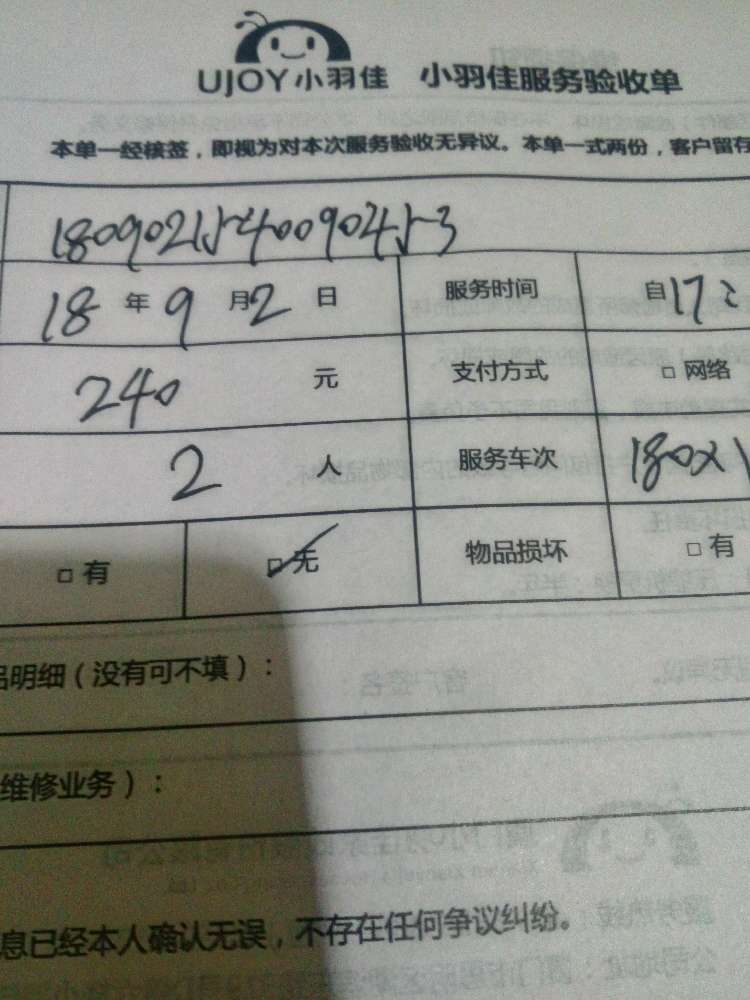 UJOY小羽佳 小羽佳服务验收单
本单一经核签，即视为对本次服务验收无异议。本单一式两份，客户留存
1809021540090453
18 年 9 月 2 日 服务时间 自 17:
240 元 支付方式 □ 网络
2 人 服务车次 180×1
□ 有 □ 无 物品损坏 □ 有
明细（没有可不填）：
维修业务）：
息已经本人确认无误，不存在任何争议纠纷。